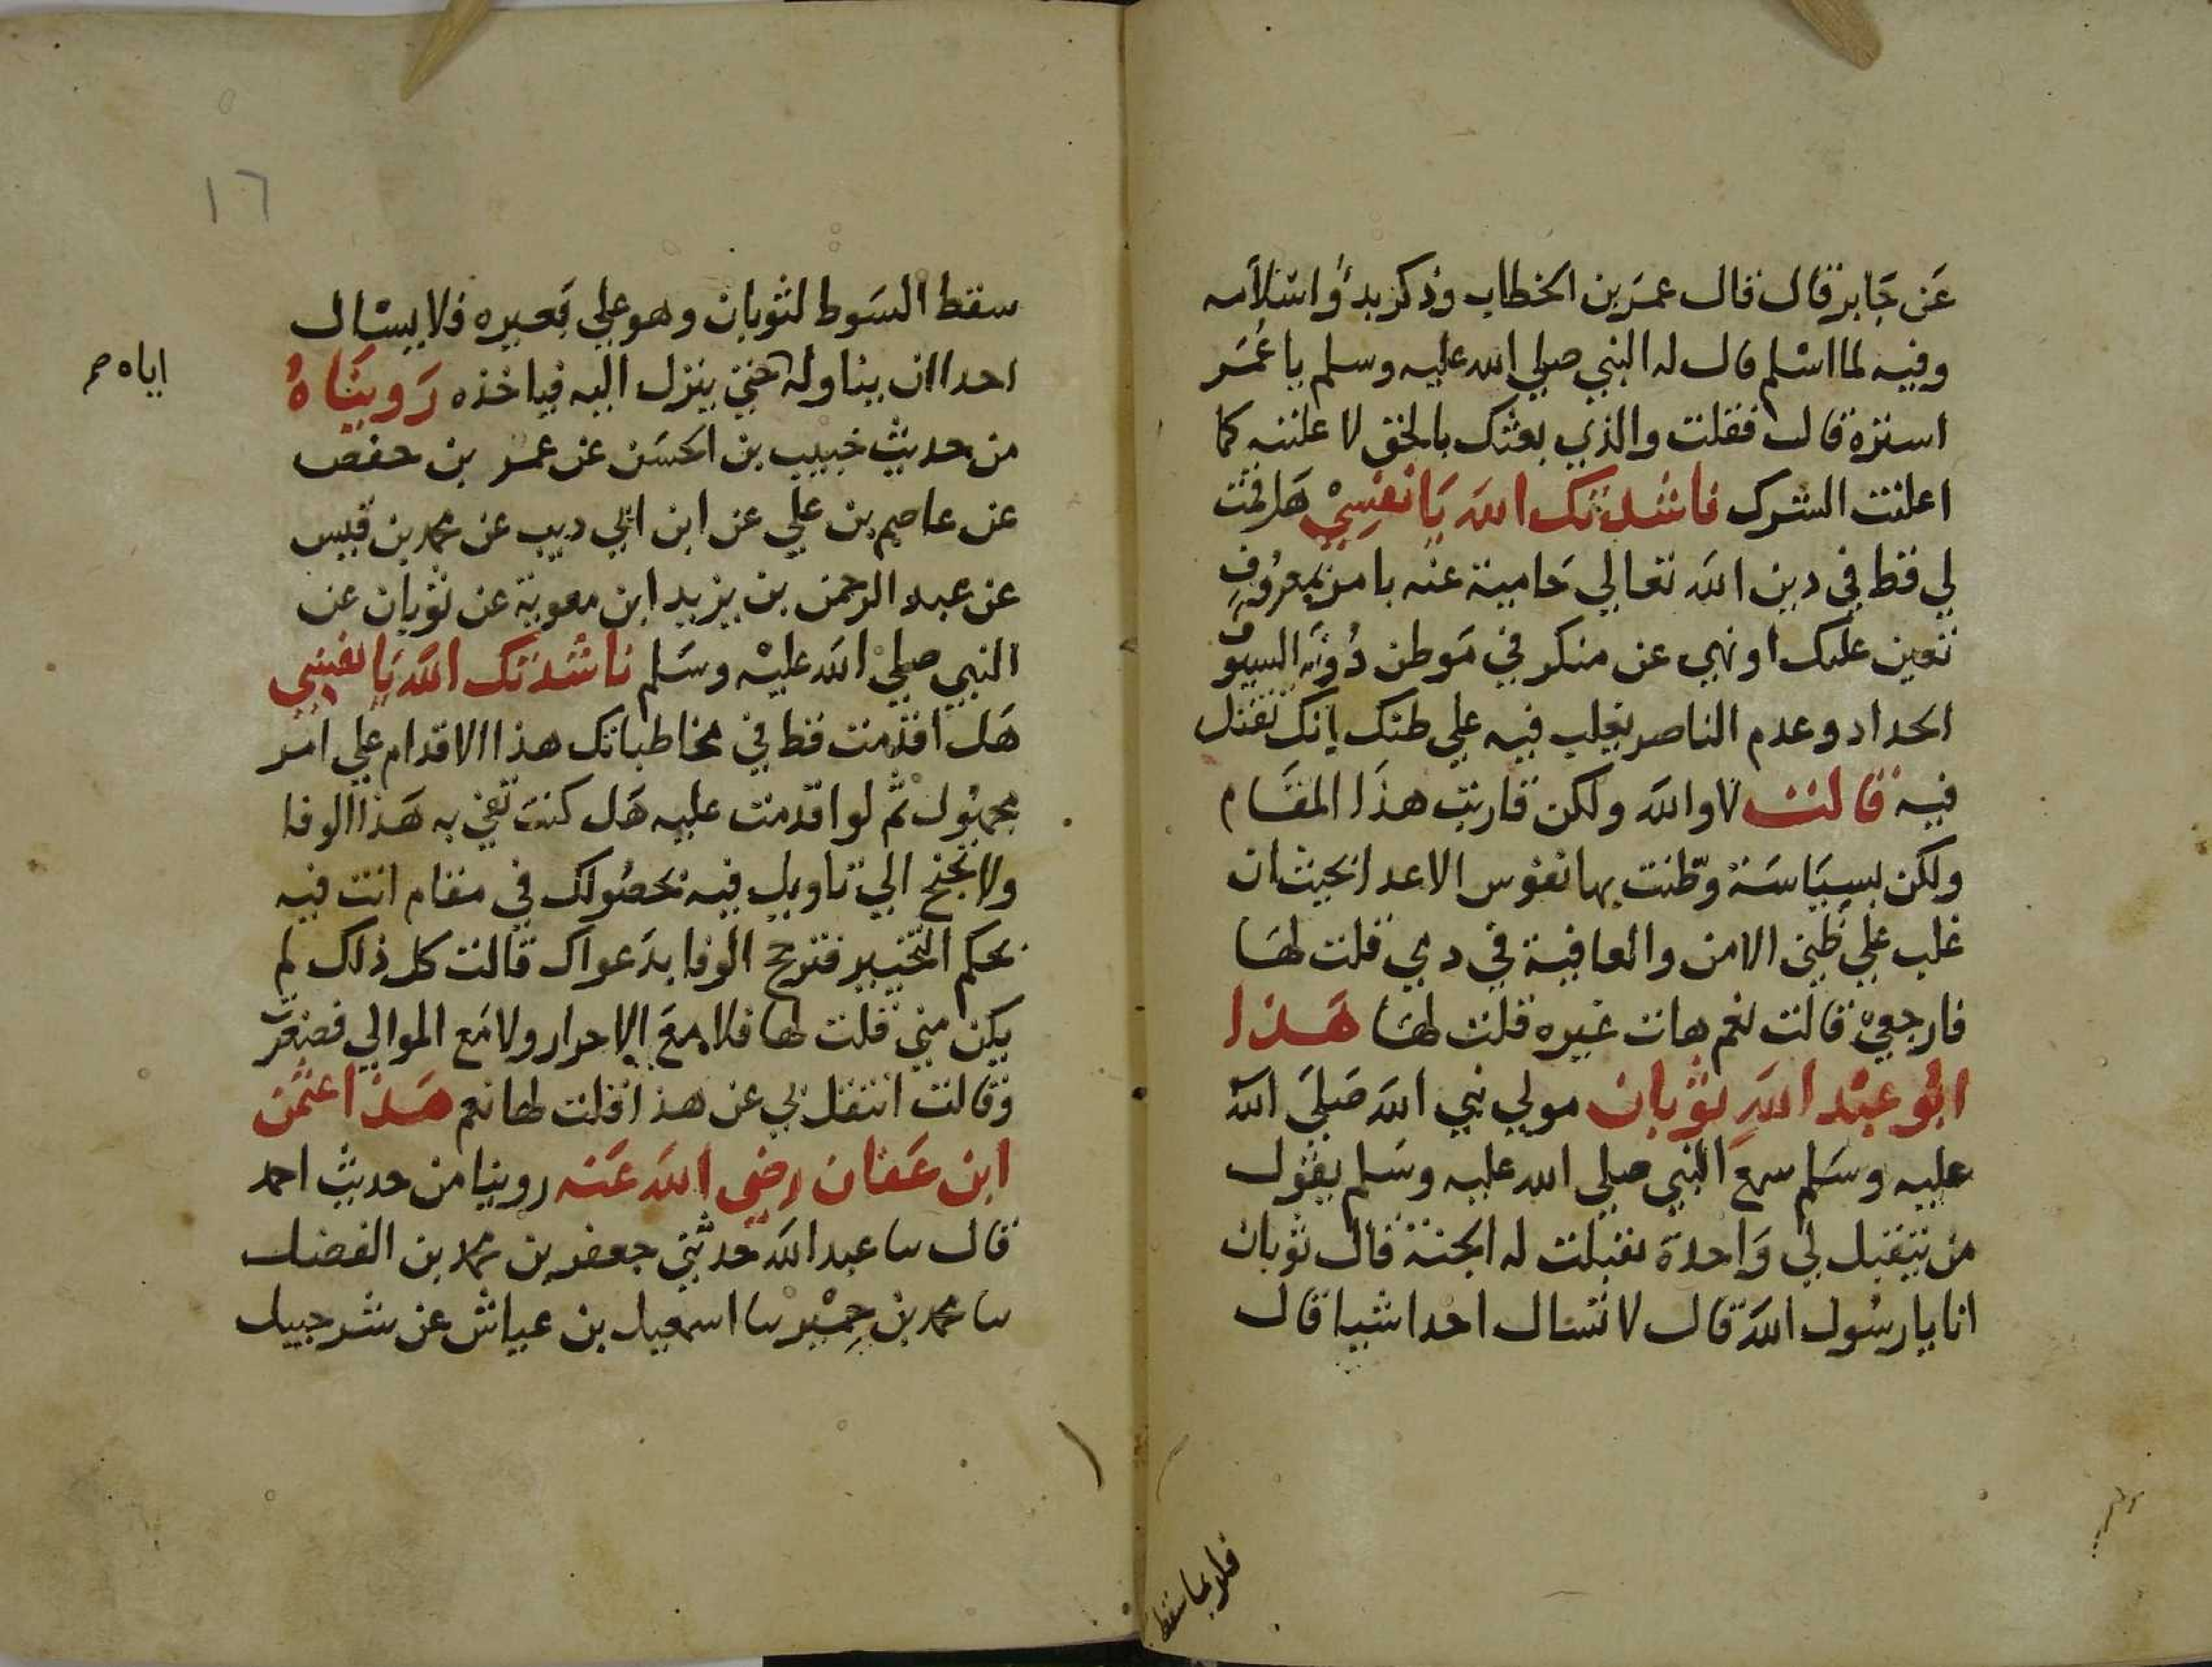 عَن جَابر قال قال عمَر بن الخطاب وذكر بدؤ اسْلامه
وفيه لما اسْلم قال له النبي صلي الله عليه وسلم يا عُمَر
استره قال فقلت والذي بعثك بالحق لا علننه كما
اعلنت الشرك ناشدتك الله يَا نفسِيْ هَل قمت
لي قط في دين الله تعالي حَامية عنه بامر بمعرُوفٍ
تعين عليك او نهي عن منكر في مَوطن دُونَه السيوف
الحداد وعدم الناصر يغلب فيه علي ظنك انك تقتل
فيه قالت لا والله ولكن قاربت هذا المقام
ولكن بسيَاسَة وطّنت بها نفوس الاعدا بحيث ان
غلب علي ظني الامن والعافية في دمي قلت لهَا
فارجعي قالت نعم هات غيره قلت لهَا هَذا
ابُو عبْد اللهِ ثوبان مولي نبي الله صَليَ الله
عليه وسَلم سمع النبي صلي الله عليه وسَلم يقول
من يتقبل لي وَاحدة تقبلت له الجنة قال ثوبان
انا يا رسُول الله قال لا تسْال احدا شيا قال
فلربما سقط
١٦
سقط السَوط لثوبان وهو علي بَعيره فلا يسْال
احدا ان يناوله حتي ينزل اليه فياخذه رَوينَاهُ
اياه صح
من حديث خبيب بن الحسَن عن عمر بن حفص
عن عاصم بن علي عن ابن ابي ديب عن محمد بن قيس
عن عبد الرحمن بن يزيد ابن معوية عن ثوبان عن
النبي صلي الله عليْه وسَلم ناشدتك الله يَا نفسي
هَل اقدمت قط في مخاطباتك هذا الاقدام علي امر
مجهُول ثم لو اقدمت عليه هَل كنت تفي به هَذا الوفا
ولا تجنح الي تاويل فيه بحصُولك في مقام انت فيه
بحكم التخيير فترجح الوفا بدَعواك قالت كل ذلك لم
يكن مني قلت لها فلا مَع الاحرار ولا مَع الموالي فصغرت
وقالت انتقل بي عن هذا قلت لها نعم هَذا عثمن
ابن عَفان رضي الله عَنه روينا من حديث احمد
قال سا عبد الله حدثني جعفر بن محمد بن الفضل
سا محمد بن حِمْير سا اسمعيل بن عياش عن شرحبيل